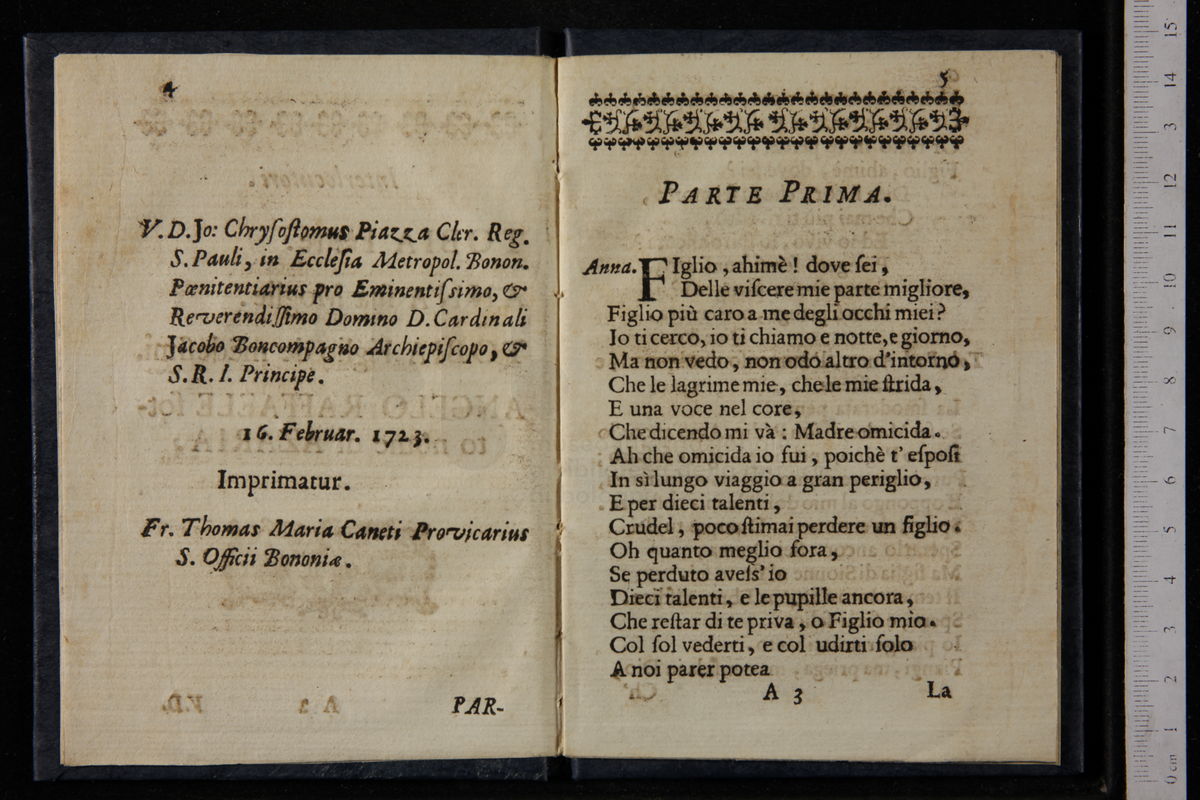 4
V. D. Jo: Chryſoſtomus Piazza Cler. Reg.
S. Pauli, in Eccleſia Metropol. Bonon.
Pœnitentiarius pro Eminentiſſimo, &
Reverendiſſimo Domino D. Cardinali
Jacobo Boncompagno Archiepiſcopo, &
S. R. I. Principe.
16. Februar. 1723.
Imprimatur.
Fr. Thomas Maria Caneti Provicarius
S. Officii Bononiæ.
PAR-
5
PARTE PRIMA.
Anna. FIglio, ahimè! dove ſei,
Delle viſcere mie parte migliore,
Figlio più caro a me degli occhi miei?
Io ti cerco, io ti chiamo e notte, e giorno,
Ma non vedo, non odo altro d'intorno,
Che le lagrime mie, che le mie ſtrida,
E una voce nel core,
Che dicendo mi và: Madre omicida.
Ah che omicida io fui, poichè t' eſpoſi
In sì lungo viaggio a gran periglio,
E per dieci talenti,
Crudel, poco ſtimai perdere un figlio.
Oh quanto meglio fora,
Se perduto aveſs' io
Dieci talenti, e le pupille ancora,
Che reſtar di te priva, o Figlio mio.
Col ſol vederti, e col udirti ſolo
A noi parer potea
A 3
La